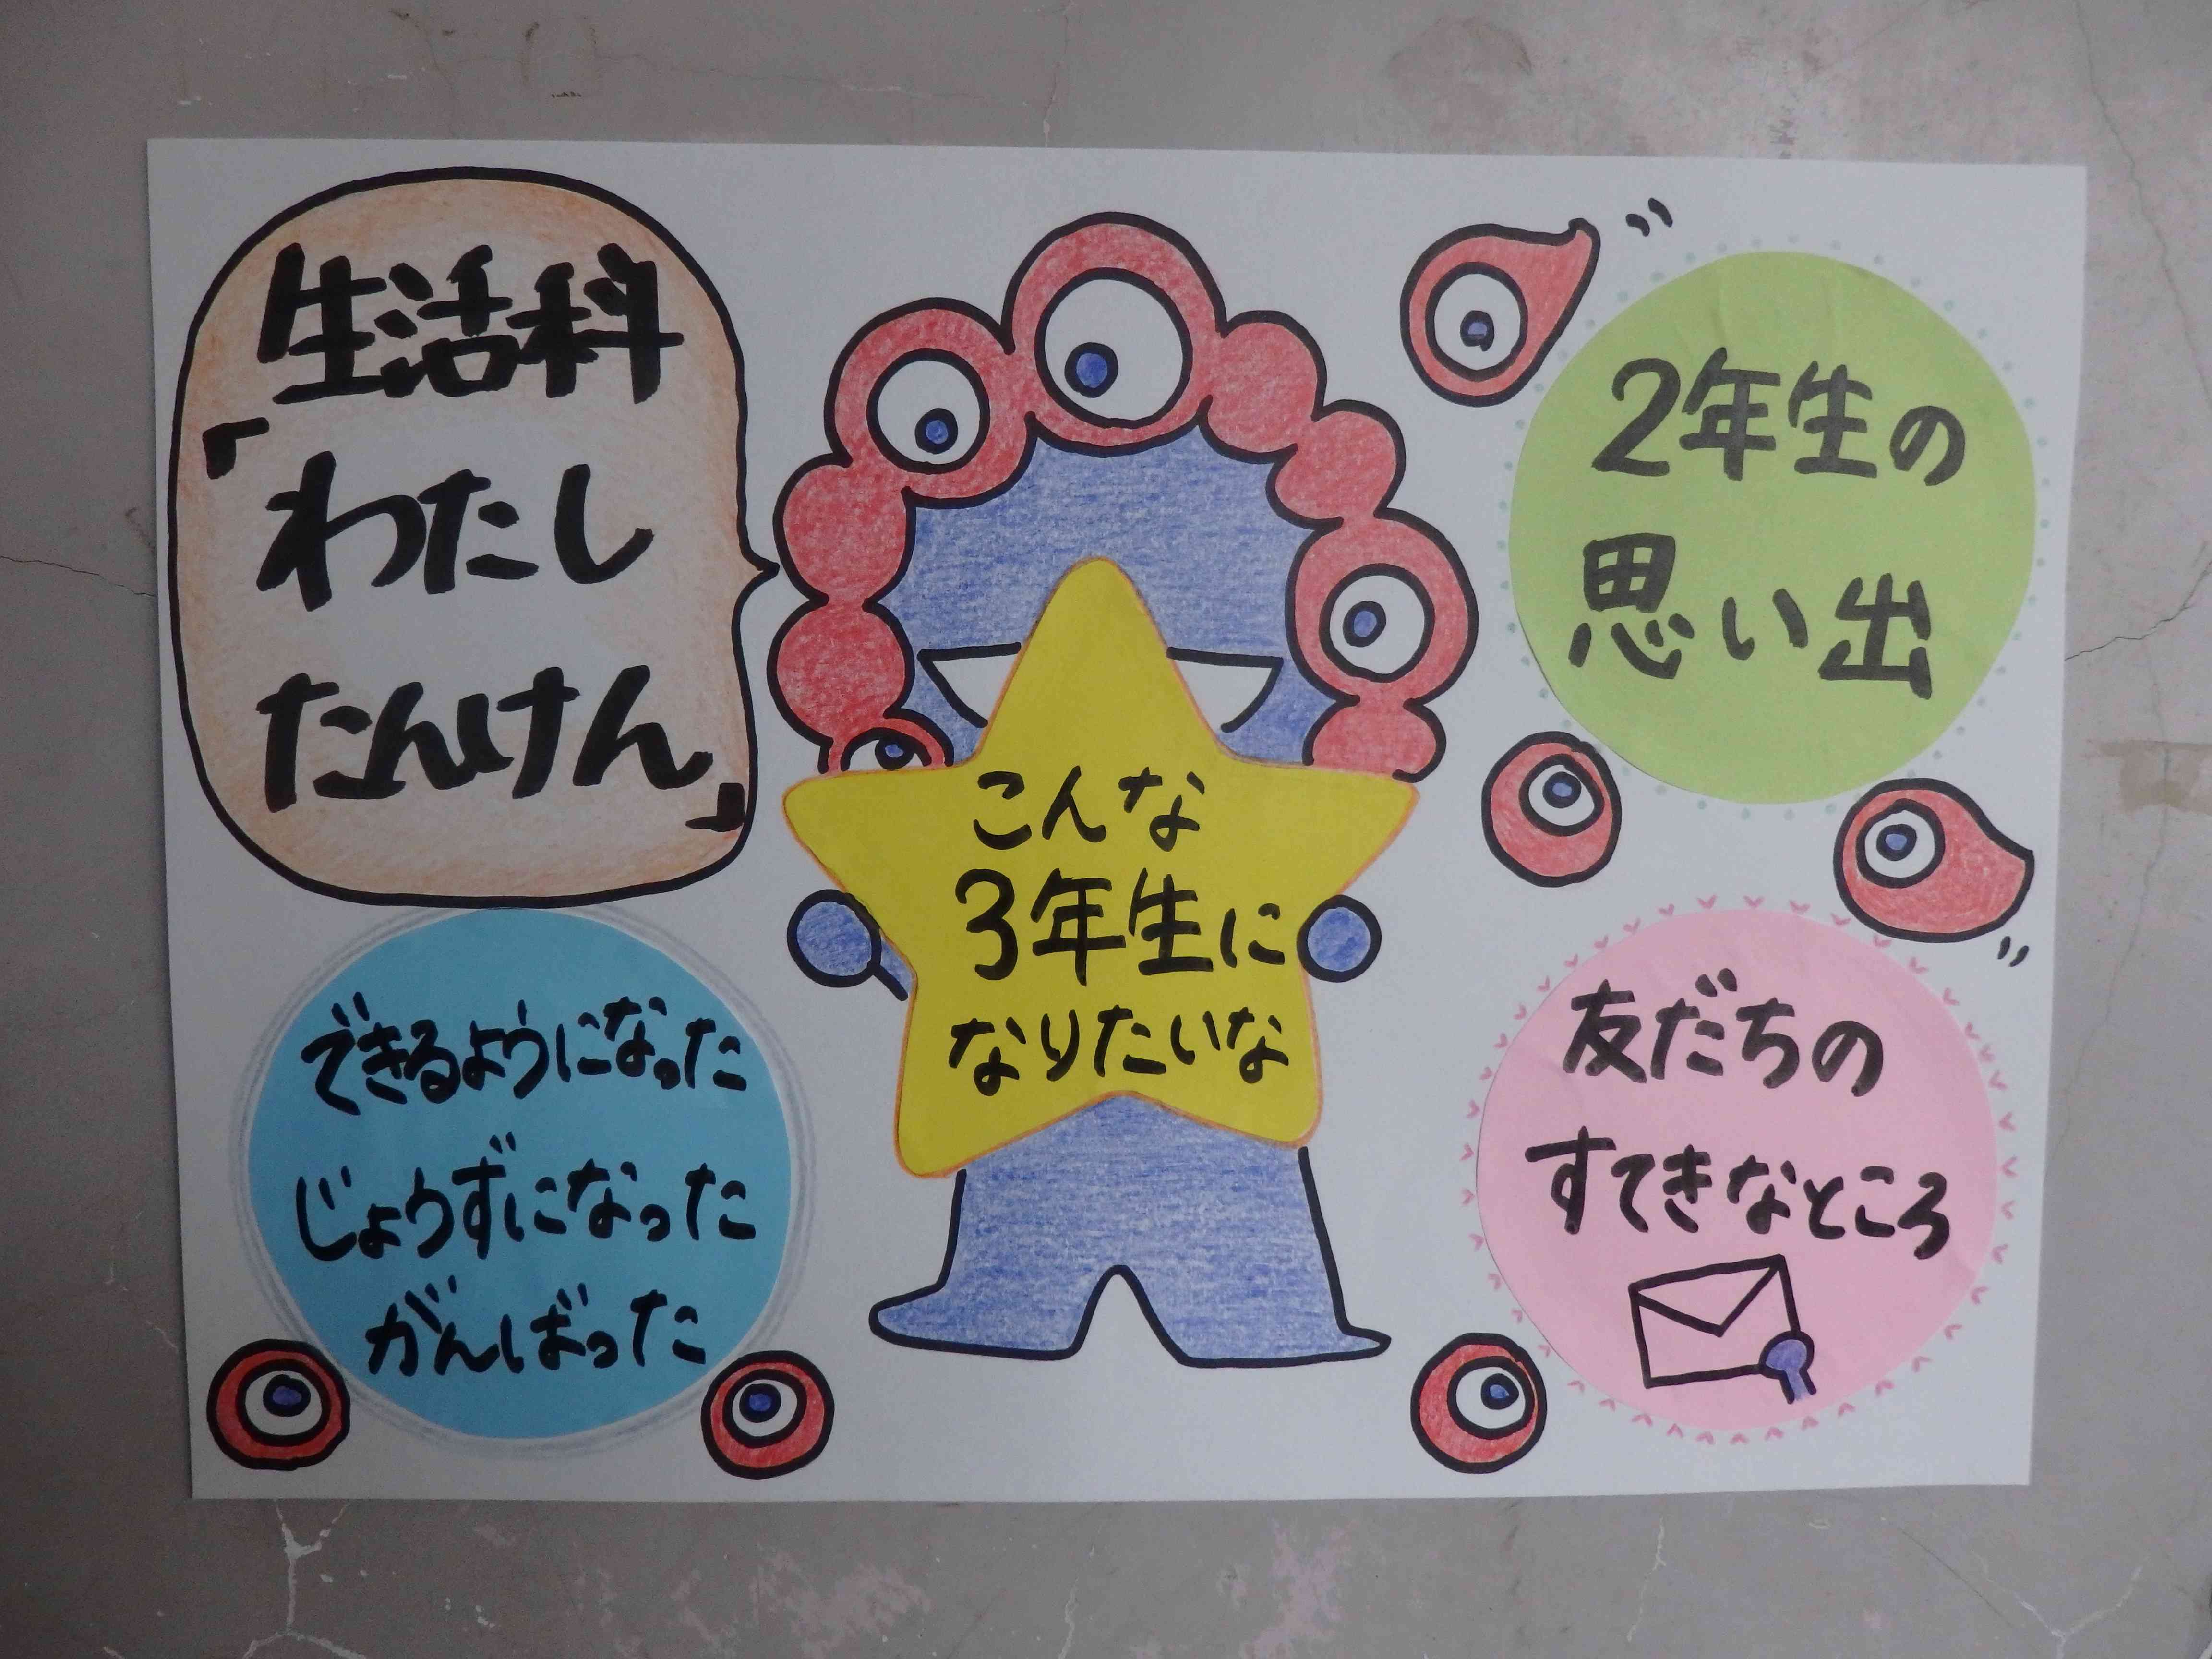 生活科
「わたし
たんけん」
2年生の
思い出
こんな
3年生に
なりたいな
できるようになった
じょうずになった
がんばった
友だちの
すてきなところ